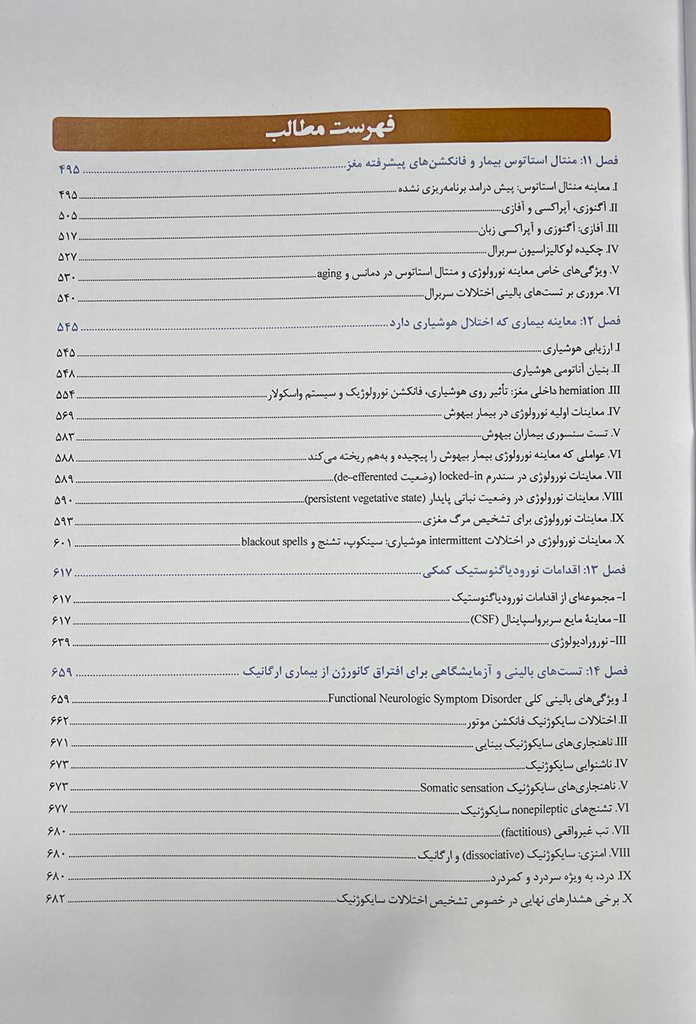 فهرست مطالب
فصل ۱۱: منتال استاتوس بیمار و فانکشن‌های پیشرفته مغز ........ ۴۹۵
I. معاینه منتال استاتوس: پیش درامد برنامه‌ریزی نشده ........ ۴۹۵
II. آگنوزی، آپراکسی و آفازی ........ ۵۰۵
III. آفازی: آگنوزی و آپراکسی زبان ........ ۵۱۷
IV. چکیده لوکالیزاسیون سربرال ........ ۵۲۷
V. ویژگی‌های خاص معاینه نورولوژی و منتال استاتوس در دمانس و aging ........ ۵۳۰
VI. مروری بر تست‌های بالینی اختلالات سربرال ........ ۵۴۰
فصل ۱۲: معاینه بیماری که اختلال هوشیاری دارد ........ ۵۴۵
I. ارزیابی هوشیاری ........ ۵۴۵
II. بنیان آناتومی هوشیاری ........ ۵۴۸
III. herniation داخلی مغز: تأثیر روی هوشیاری، فانکشن نورولوژیک و سیستم واسکولار ........ ۵۵۴
IV. معاینات اولیه نورولوژی در بیمار بیهوش ........ ۵۶۹
V. تست سنسوری بیماران بیهوش ........ ۵۸۳
VI. عواملی که معاینه نورولوژی بیمار بیهوش را پیچیده و به‌هم ریخته می‌کند ........ ۵۸۸
VII. معاینات نورولوژی در سندرم locked-in (وضعیت de-efferented) ........ ۵۸۹
VIII. معاینات نورولوژی در وضعیت نباتی پایدار (persistent vegetative state) ........ ۵۹۰
IX. معاینات نورولوژی برای تشخیص مرگ مغزی ........ ۵۹۳
X. معاینات نورولوژی در اختلالات intermittent هوشیاری: سینکوپ، تشنج و blackout spells ........ ۶۰۱
فصل ۱۳: اقدامات نورودیاگنوستیک کمکی ........ ۶۱۷
I- مجموعه‌ای از اقدامات نورودیاگنوستیک ........ ۶۱۷
II- معاینۀ مایع سربرواسپاینال (CSF) ........ ۶۱۷
III- نورورادیولوژی ........ ۶۳۹
فصل ۱۴: تست‌های بالینی و آزمایشگاهی برای افتراق کانورژن از بیماری ارگانیک ........ ۶۵۹
I. ویژگی‌های بالینی کلی Functional Neurologic Symptom Disorder ........ ۶۵۹
II. اختلالات سایکوژنیک فانکشن موتور ........ ۶۶۲
III. ناهنجاری‌های سایکوژنیک بینایی ........ ۶۷۱
IV. ناشنوایی سایکوژنیک ........ ۶۷۳
V. ناهنجاری‌های سایکوژنیک Somatic sensation ........ ۶۷۳
VI. تشنج‌های nonepileptic سایکوژنیک ........ ۶۷۷
VII. تب غیرواقعی (factitious) ........ ۶۸۰
VIII. آمنزی: سایکوژنیک (dissociative) و ارگانیک ........ ۶۸۰
IX. درد، به ویژه سردرد و کمردرد ........ ۶۸۰
X. برخی هشدارهای نهایی در خصوص تشخیص اختلالات سایکوژنیک ........ ۶۸۲